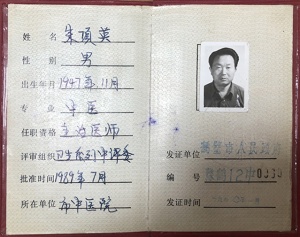 姓名 朱顶英
性别 男
出生年月 1947年11月
专业 中医
任职资格 主治医师
评审组织 卫生系列中评委
批准时间 1989年7月
所在单位 市中医院
发证单位
编号
发证时间